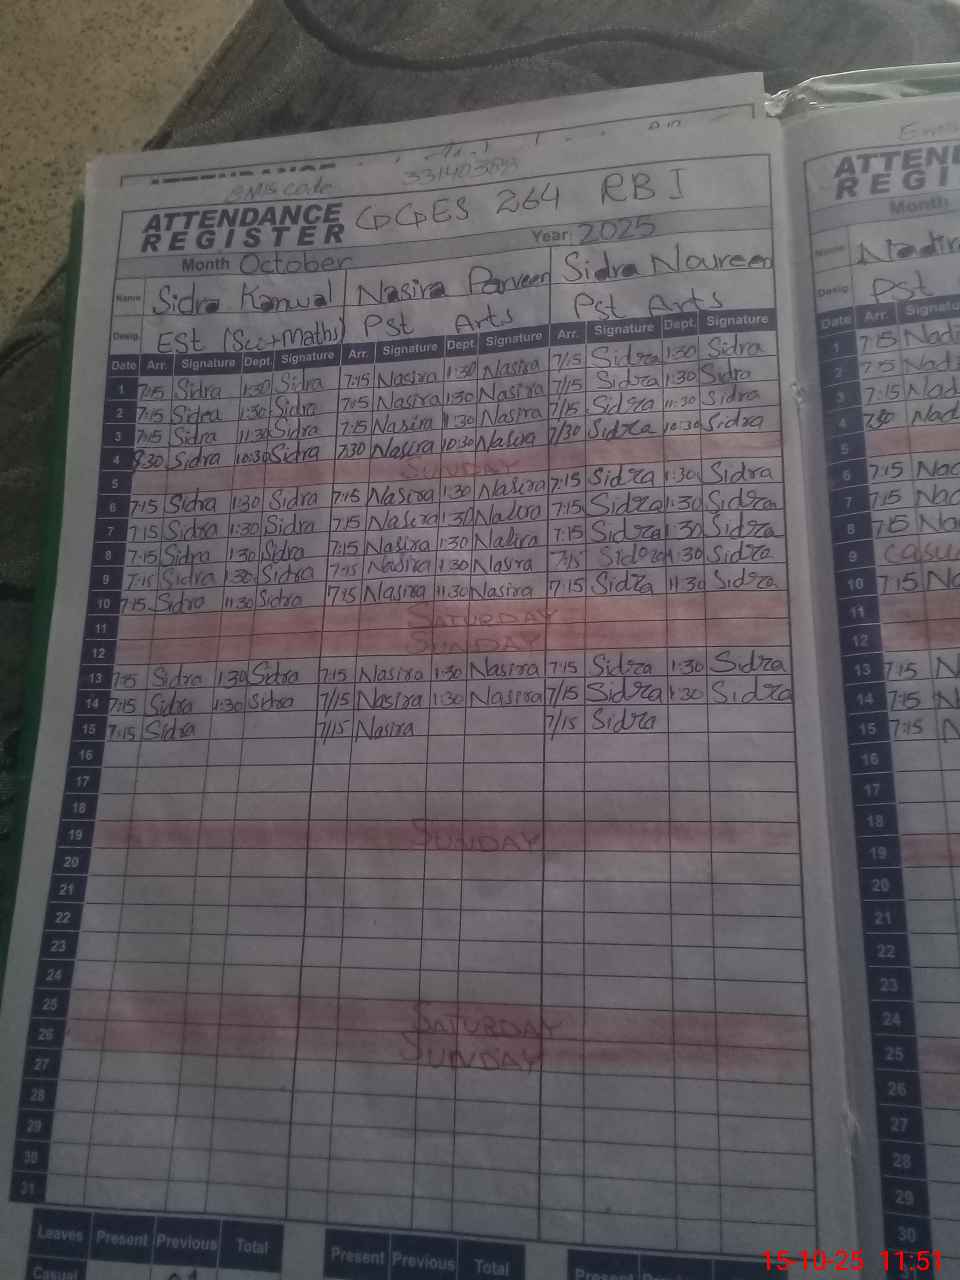 EMIS code 33140388
ATTENDANCE REGISTER GDGPES 264 RB I
Month October Year: 2025
Name Sidra Kanwal Nasira Parveen Sidra Noureen
Desig. EST (Sci+Maths) Pst Arts Pst Arts
Date Arr. Signature Dept. Signature Arr. Signature Dept. Signature Arr. Signature Dept. Signature
1 7:15 Sidra 1:30 Sidra 7:15 Nasira 1:30 Nasira 7/15 Sidra 1:30 Sidra
2 7:15 Sidra 1:30 Sidra 7:15 Nasira 1:30 Nasira 7/15 Sidra 1:30 Sidra
3 7:15 Sidra 11:30 Sidra 7:15 Nasira 11:30 Nasira 7/15 Sidra 11:30 Sidra
4 Sidra 10:30 Sidra 7:30 Nasira 10:30 Nasira 7/30 Sidra 10:30 Sidra
5 SUNDAY
6 7:15 Sidra 1:30 Sidra 7:15 Nasira 1:30 Nasira 7:15 Sidra 1:30 Sidra
7 7:15 Sidra 1:30 Sidra 7:15 Nasira 1:30 Nasira 7:15 Sidra 1:30 Sidra
8 7:15 Sidra 1:30 Sidra 7:15 Nasira 1:30 Nasira 7:15 Sidra 1:30 Sidra
9 7:15 Sidra 1:30 Sidra 7:15 Nasira 1:30 Nasira 7:15 Sidra 1:30 Sidra
10 7:15 Sidra 11:30 Sidra 7:15 Nasira 11:30 Nasira 7:15 Sidra 11:30 Sidra
11 SATURDAY
12 SUNDAY
13 7:15 Sidra 1:30 Sidra 7:15 Nasira 1:30 Nasira 7:15 Sidra 1:30 Sidra
14 7:15 Sidra 1:30 Sidra 7/15 Nasira 1:30 Nasira 7/15 Sidra 1:30 Sidra
15 7:15 Sidra 7/15 Nasira 7/15 Sidra
16
17
18
19 SUNDAY
20
21
22
23
24
25 SATURDAY
26 SUNDAY
27
28
29
30
31
Leaves Present Previous Total Present Previous Total Present
Casual
ATTEN
REGI
Month
Name Nadira
Desig. Pst
Date Arr. Signatu
1 7:15 Nadi
2 7:15 Nadi
3 7:15 Nad
4 7:30 Nad
5
6 7:15 Nad
7 7:15 Nad
8 7:15 Na
9 Casu
10 7:15 Na
11
12
13 7:15 N
14 7:15 N
15 7:15 N
16
17
18
19
20
21
22
23
24
25
26
27
28
29
30
15-10-25 11:51